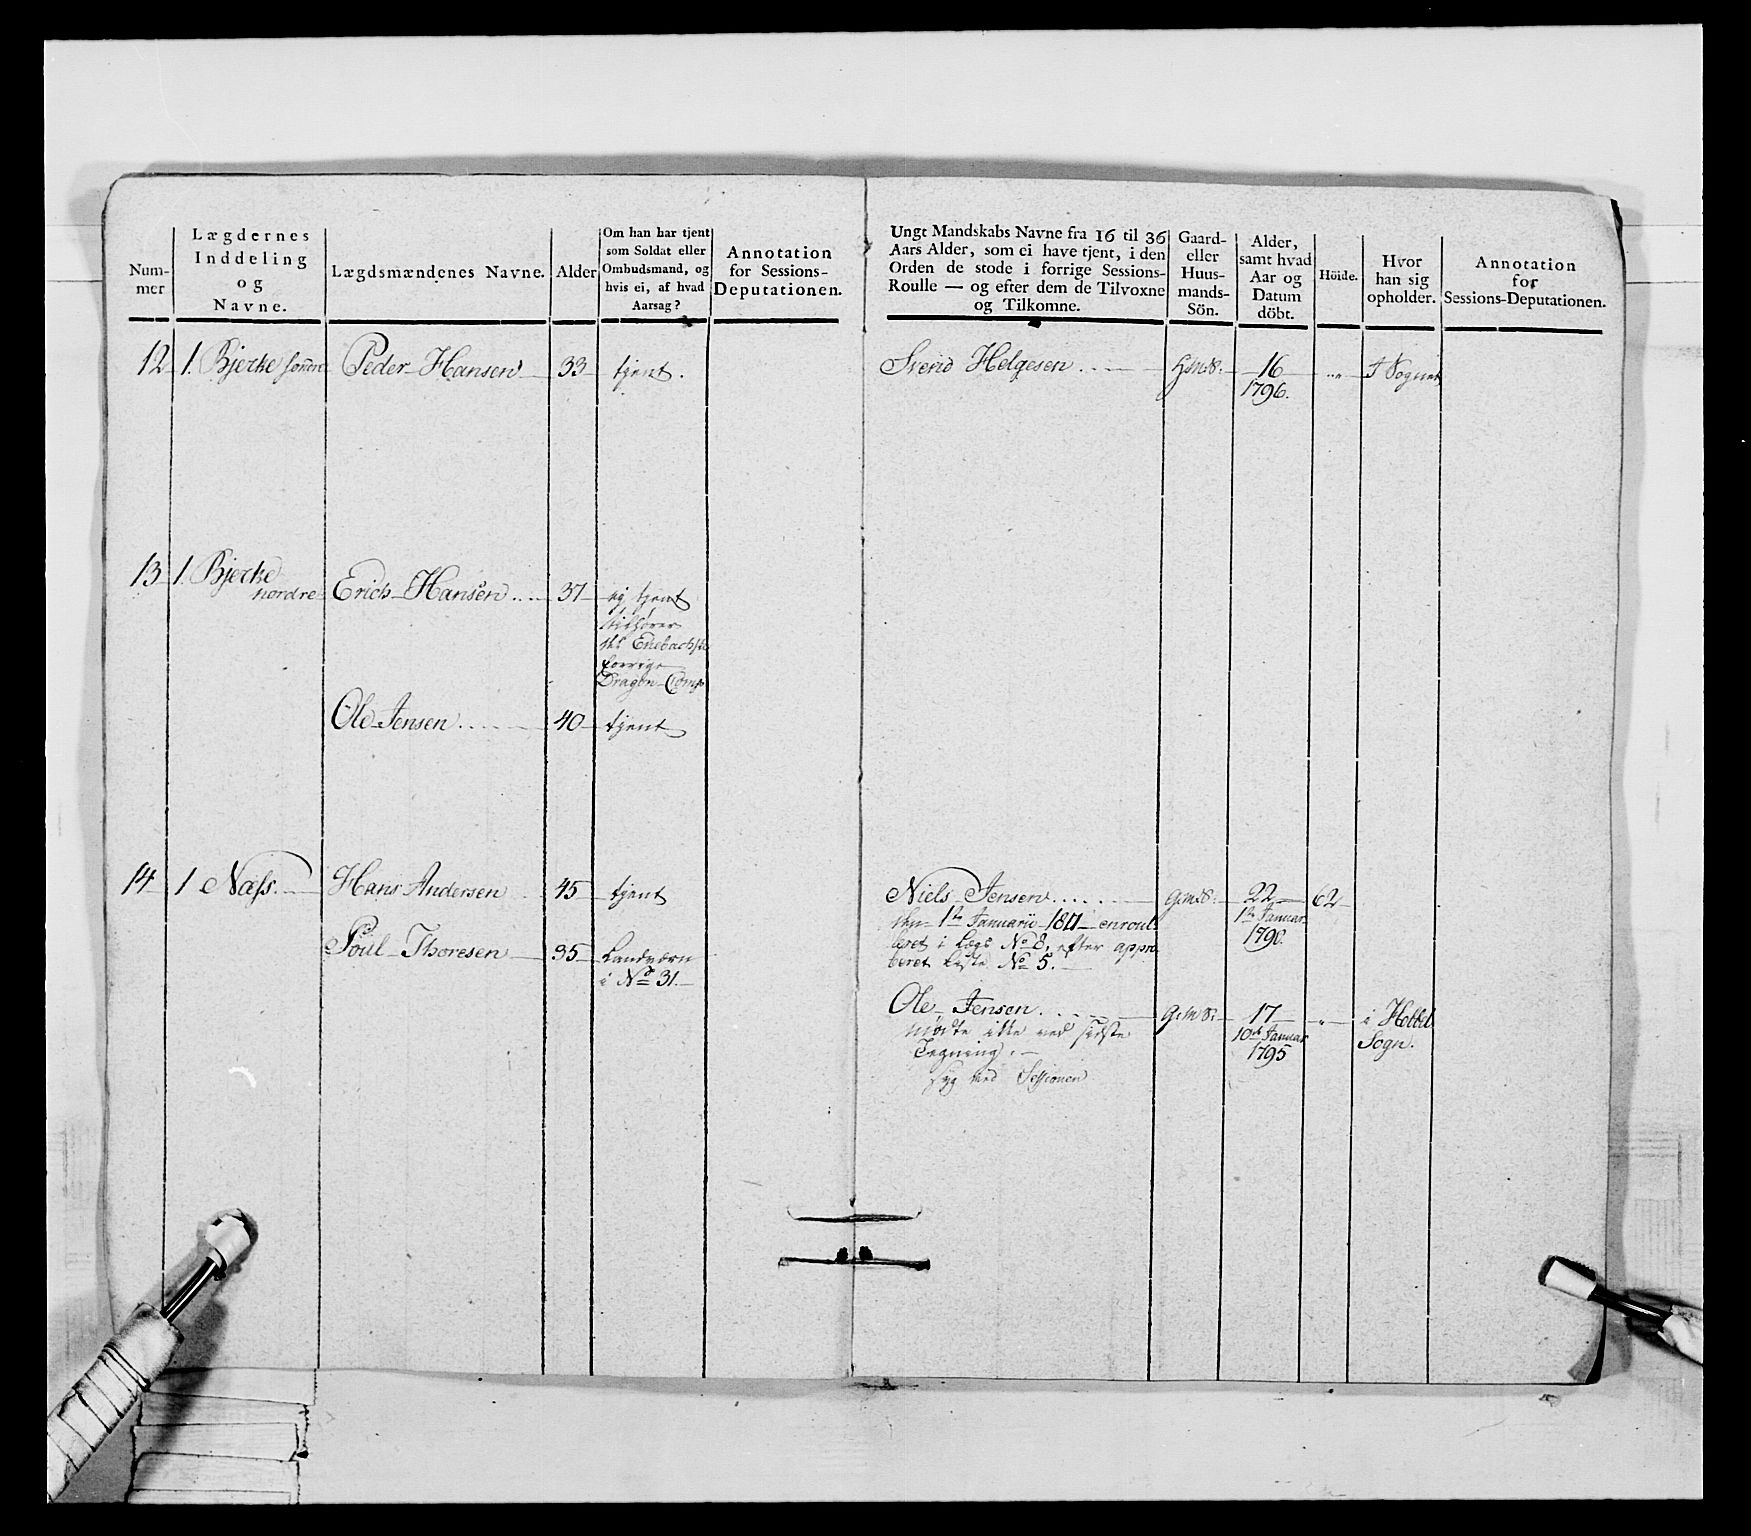 Num-
mer
Lægdernes
Inddeling
og
Navne.
Lægdsmændenes Navne.
Alder
Om han har tjent
som Soldat eller
Ombudsmand, og
hvis ei, af hvad
Aarsag?
Annotation
for Sessions-
Deputationen.
Ungt Mandskabs Navne fra 16 til 36
Aars Alder, som ei have tjent, i den
Orden de stode i forrige Sessions-
Roulle — og efter dem de Tilvoxne
og Tilkomne.
Gaard-
eller
Huus-
mands-
Sön.
Alder,
samt hvad
Aar og
Datum
döbt.
Höide.
Hvor
han sig
opholder.
Annotation
for
Sessions-Deputationen.
12 1. Bjerke søndre Peder Hansen 33 tjent.
Svend Helgesen 16 I Sognet
1796.
13 1. Bjerke
nordre Erich Hansen 37 ej tjent
tilhører
det Enebachske
forrige
Dragon Comp
Ole Jensen 40 tjent
14 1 Næss. Hans Andersen 45 tjent
Poul Thoresen 35 Landværn
i No 31.
Niels Jensen G:m:S: 22 62
den 1te Januarii 1811 enroul-
1te Januar
leret i Lægd No 8, efter appro-
1790.
beret Liste No 5.
Ole Jensen G:m:S: 17 " i Hobbel
mødte ikke ved sidste
10de Januar
Sogn.
Tegning.
1795
syg ved Sessionen